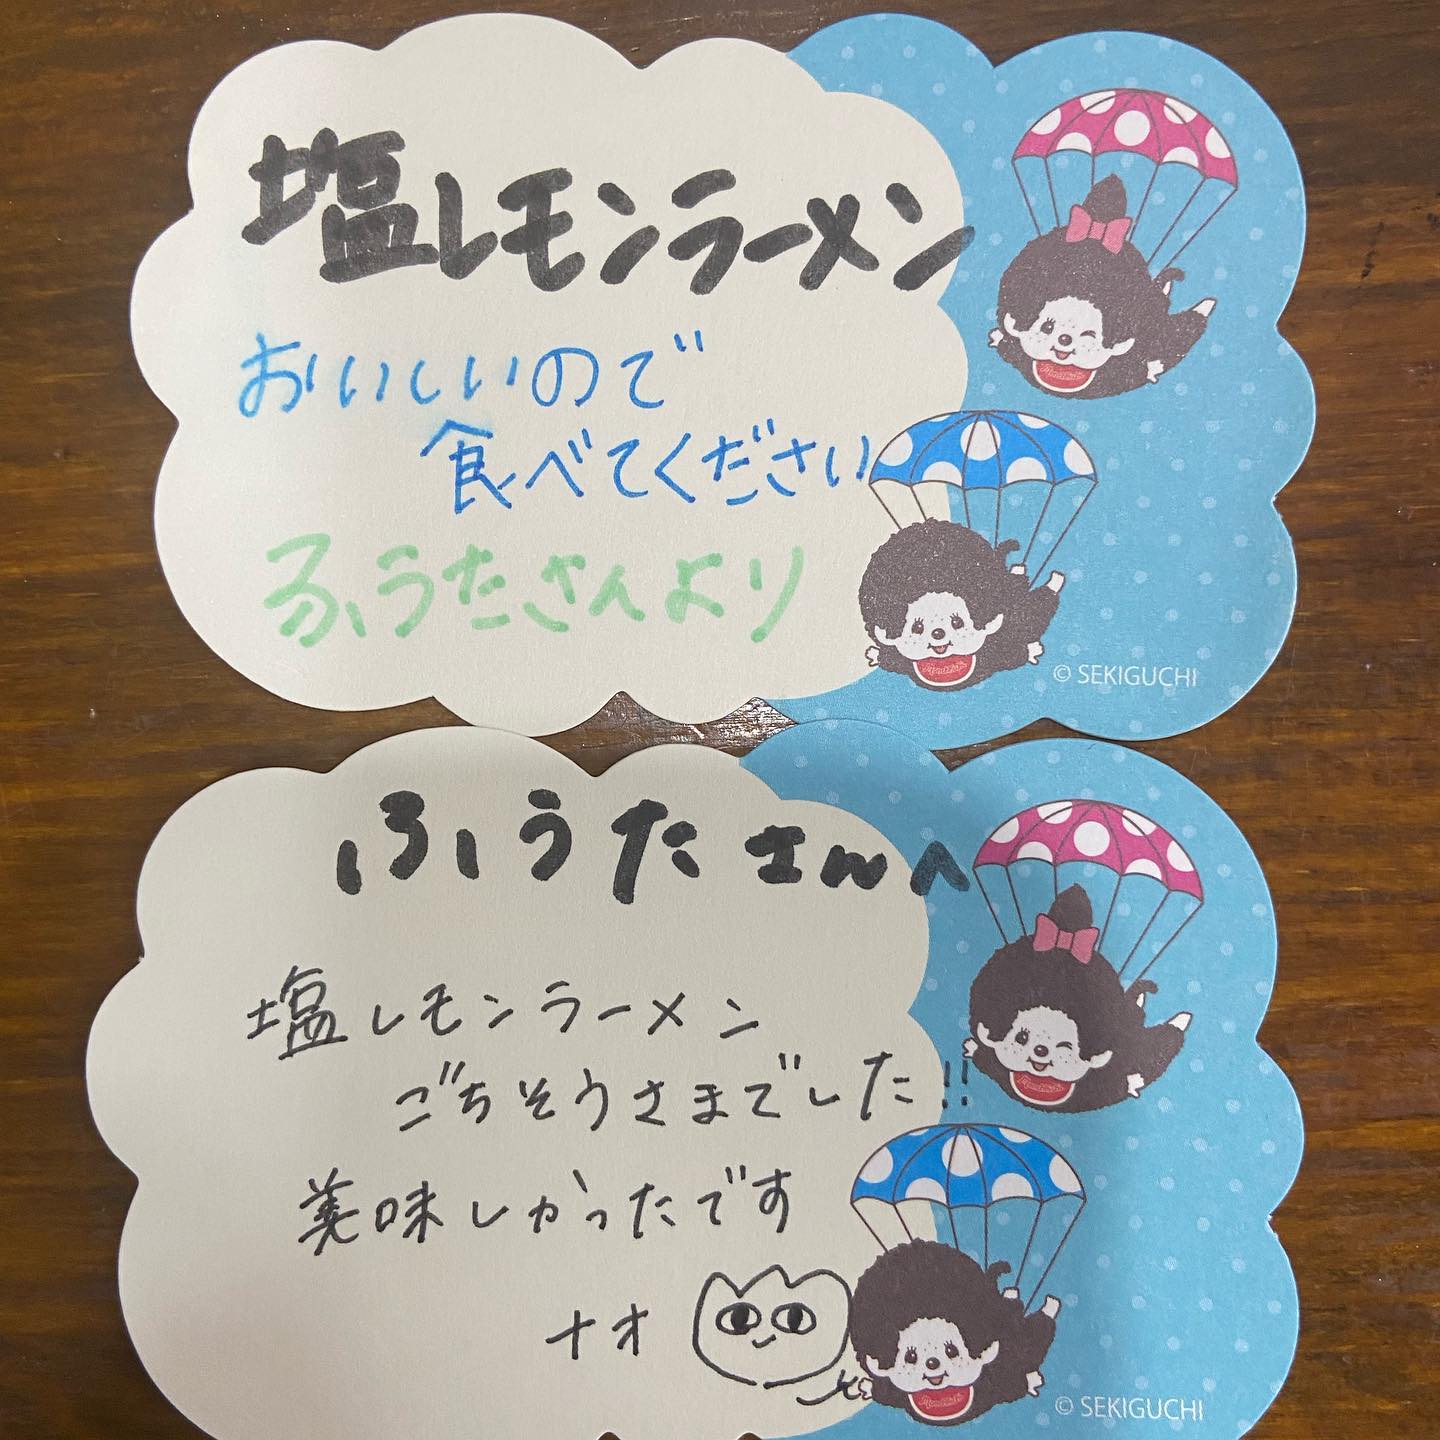 塩レモンラーメン
おいしいので
食べてください
ふうたさんより
© SEKIGUCHI
ふうたさんへ
塩レモンラーメン
ごちそうさまでした!!
美味しかったです
ナオ
© SEKIGUCHI